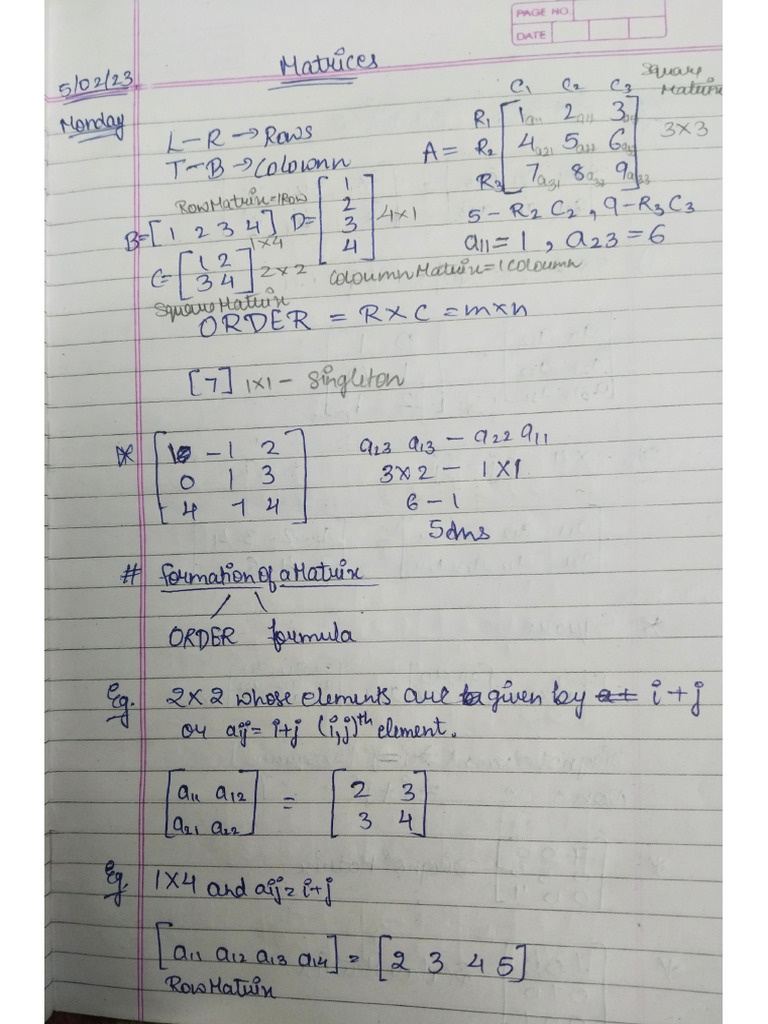 PAGE NO.
DATE
Matrices
5/02/23
Monday
L-R → Rows
T-B → Coloumn
A = C1 C2 C3
R1 [ 1a11 2a12 3a13
R2 4a21 5a22 6a23
R3 7a31 8a32 9a33 ]
Square Matrix
3×3
Row Matrix = 1 Row
B = [ 1 2 3 4 ] 1×4
D = [ 1
2
3
4 ] 4×1
5 - R2 C2 , 9 - R3 C3
a11 = 1 , a23 = 6
C = [ 1 2
3 4 ] 2×2
Square Matrix
Coloumn Matrix = 1 Coloumn
ORDER = R×C = m×n
[7] 1×1 - Singleton
* [ 1 -1 2
0 1 3
4 7 4 ]
a23 a13 - a22 a11
3×2 - 1×1
6 - 1
5 ans
# Formation of a Matrix
ORDER formula
Eg. 2×2 whose elements are given by i + j
or aij = i+j (i,j)th element.
[ a11 a12
a21 a22 ] = [ 2 3
3 4 ]
Eg 1×4 and aij = i+j
[ a11 a12 a13 a14 ] = [ 2 3 4 5 ]
Row Matrix